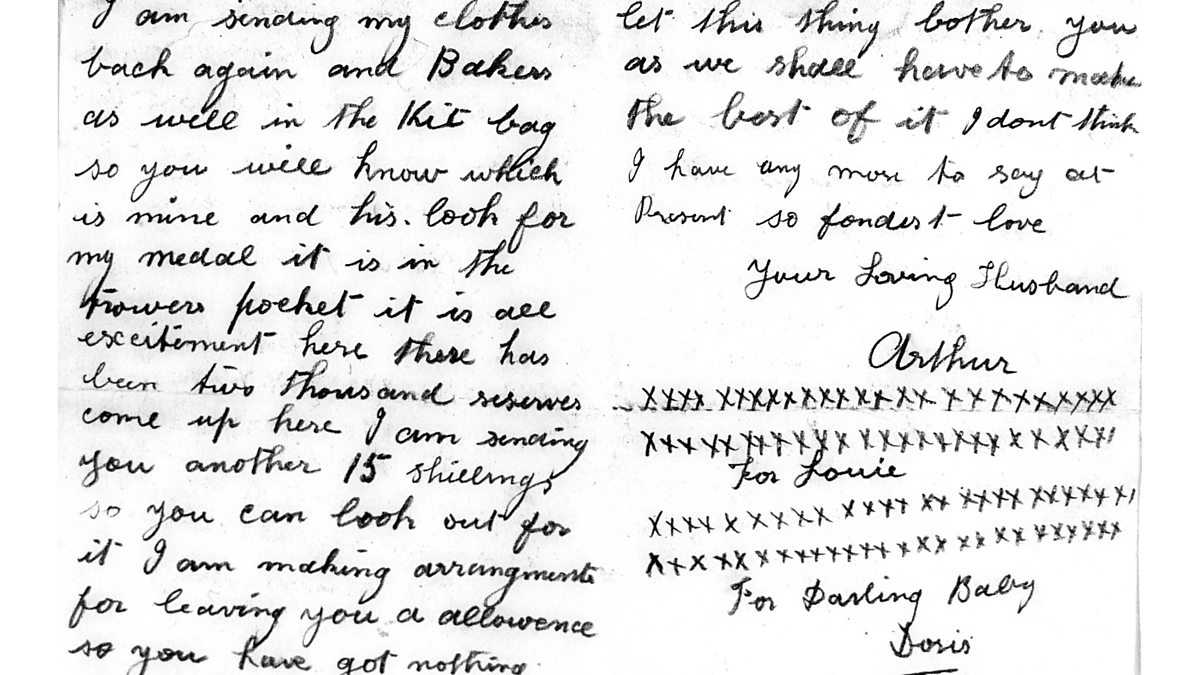 I am sending my clothes
back again and Bakers
as well in the Kit bag
so you will know which
is mine and his. look for
my medal it is in the
trowers pocket it is all
excitement here there has
been two thousand reserves
come up here I am sending
you another 15 shillings
so you can look out for
it I am making arrangments
for leaving you a allowence
so you have got nothing
let this thing bother you
as we shall have to make
the best of it I dont think
I have any more to say at
Present so fondest love
Your Loving Husband
Arthur
xxxx xxxxxxxxxxxxxx x xxxxxxxxx
xxxxxx xxxxxx xxxxxxxxx x x xxx
For Louie
xxxx x xxxxx xxxx xx xxxx xxxxxx
xxx xx xxxxxxxxxx xx xx xx xxxxxx
For Darling Baby
Doris